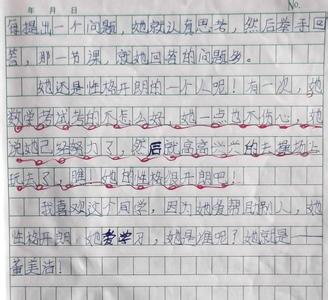 年 月 日 No.
每提出一个问题，她就认真思考，然后举手回
答，那一节课，就她回答的问题多。
她还是性格开朗的一个人呢！有一次，她
数学考试考的不怎么好，她一点也不伤心，她
说她已经努力了，然后就高高兴兴的去操场上
玩去了，瞧！她的性格很开朗吧！
我喜欢这个同学，因为她爱帮助别人，她
性格开朗，她爱学习，她是谁呢？她就是——
黄美洁！